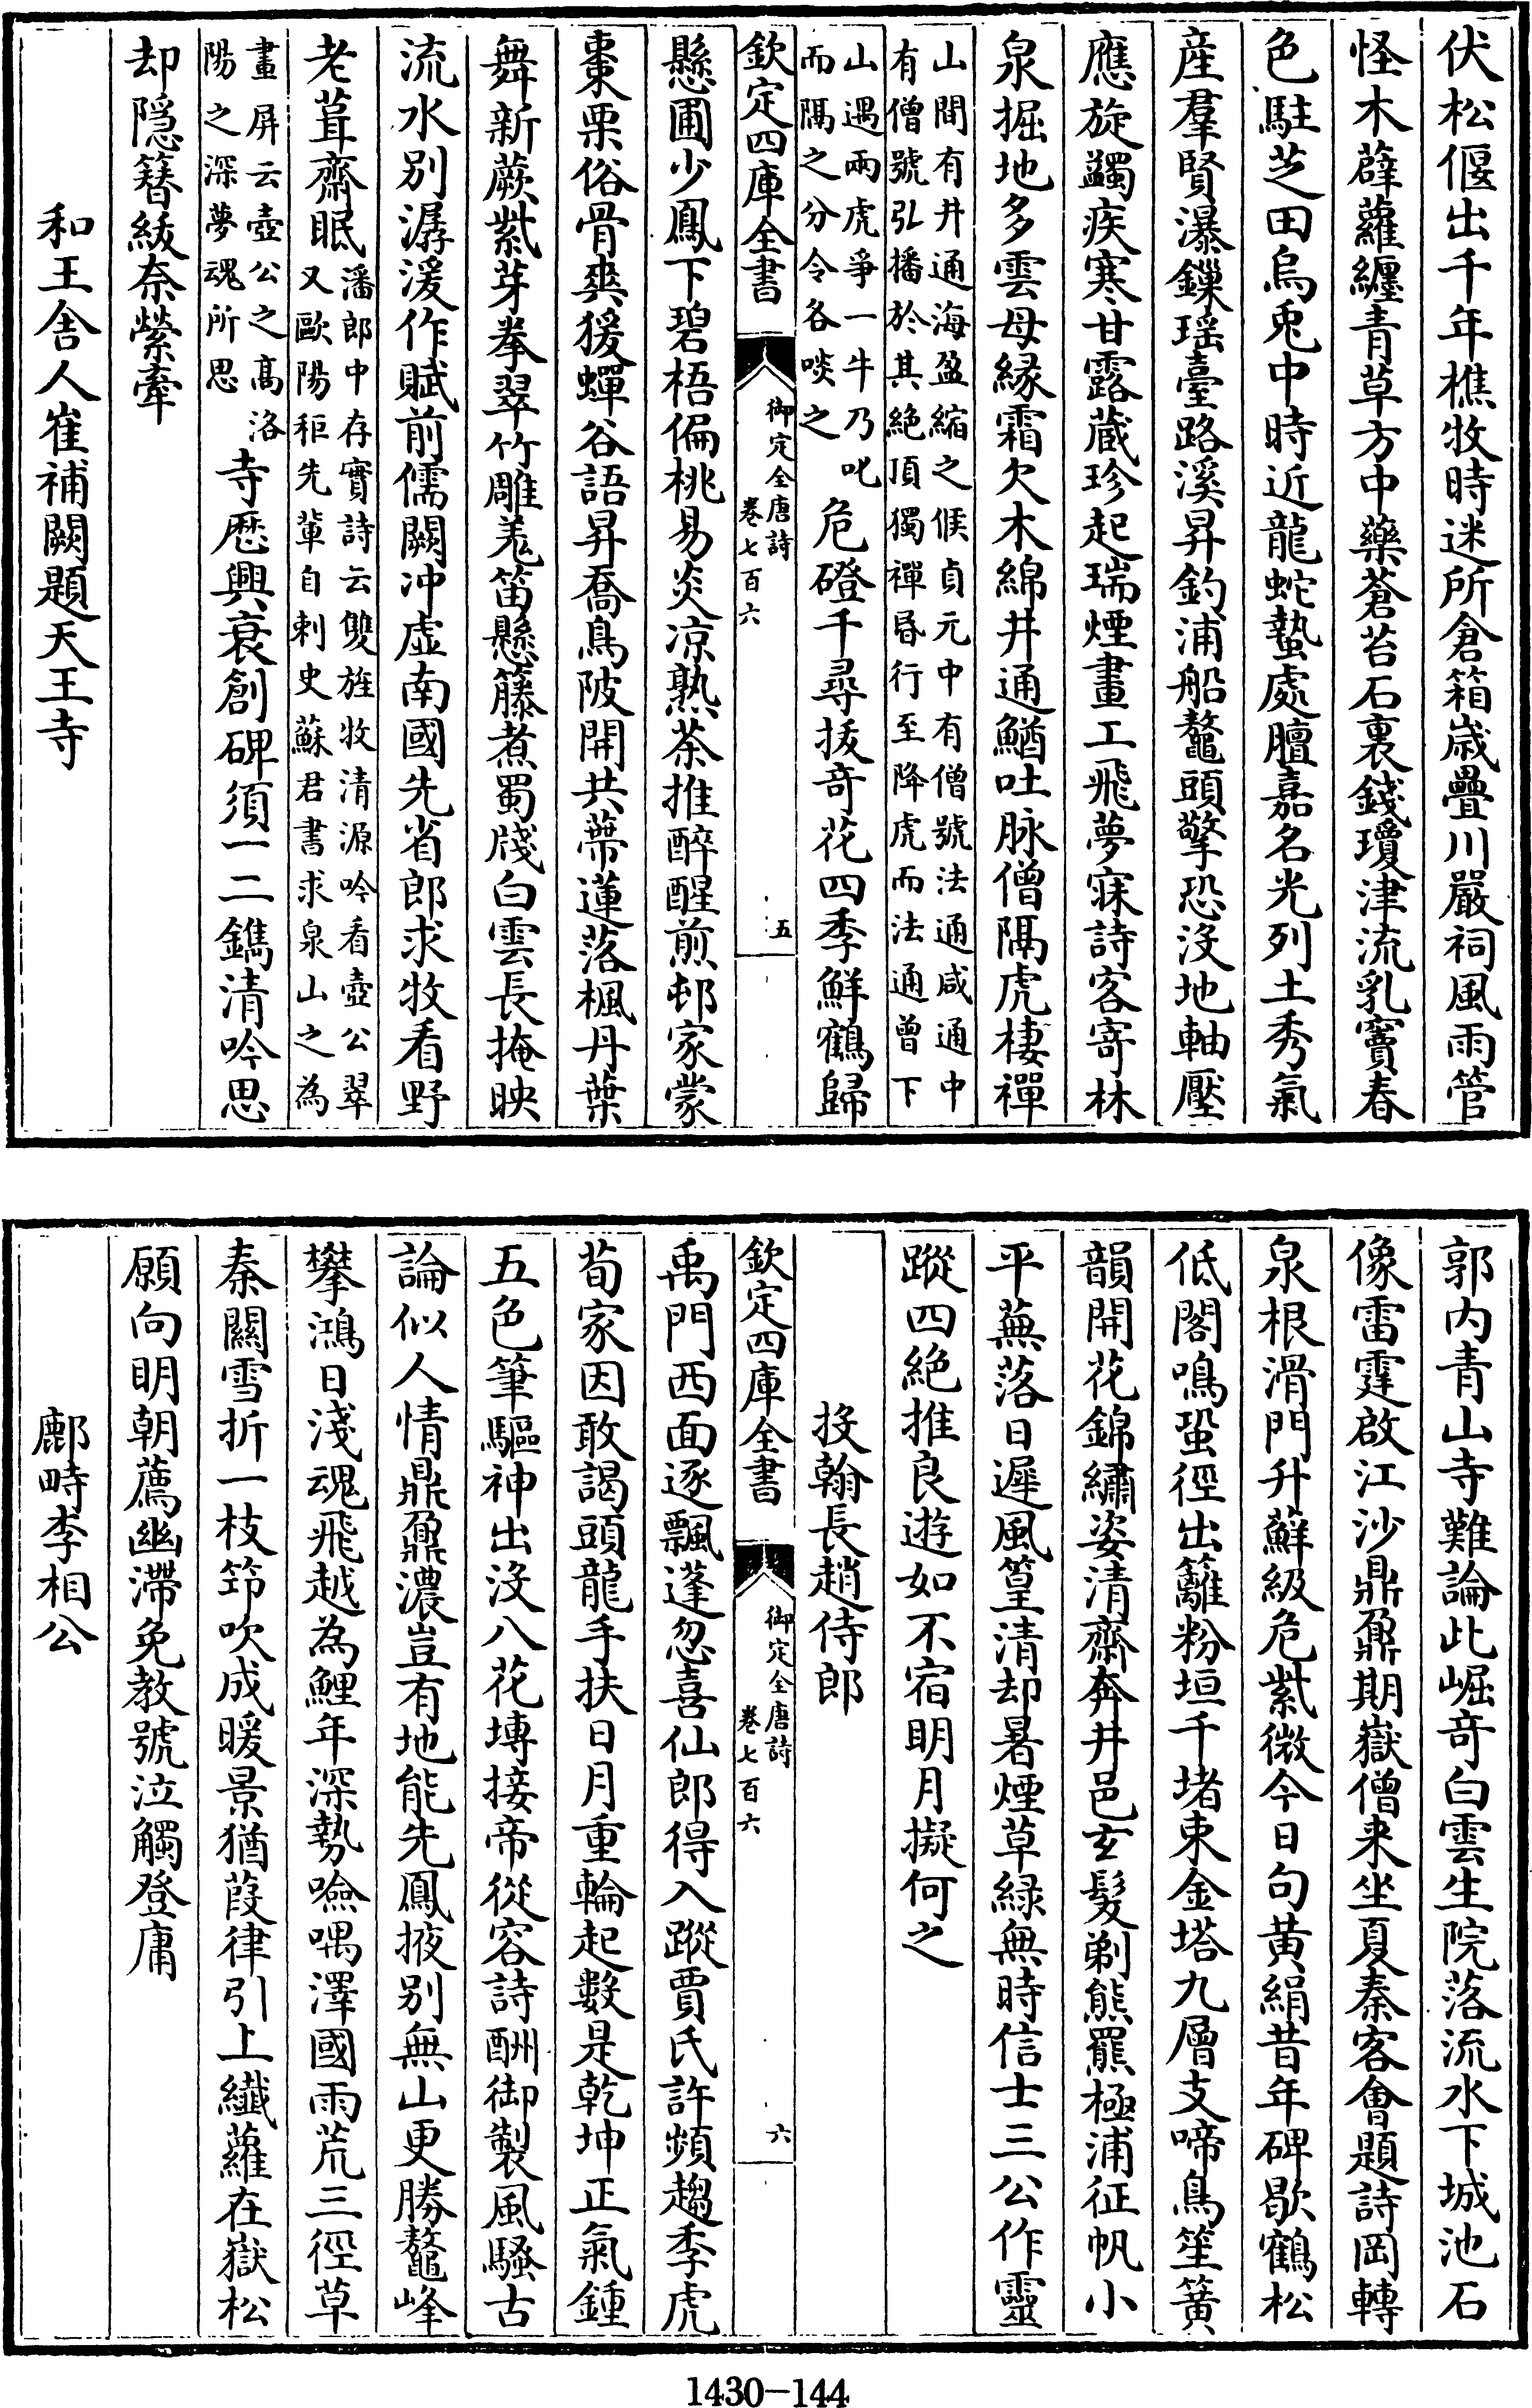 伏松偃出千年樵牧時迷所倉箱嵗疊川嚴祠風雨管
怪木薜蘿纒青草方中藥蒼苔石裏錢瓊津流乳竇春
色駐芝田烏兎中時近龍蛇蟄處膻嘉名光列土秀氣
産羣賢瀑鏁瑶臺路溪昇釣浦船鼇頭擎恐沒地軸壓
應旋蠲疾寒甘露藏珍起瑞煙畫工飛夢寐詩客寄林
泉掘地多雲母縁霜欠木綿井通鰌吐脉僧隔虎棲禪
山間有井通海盈縮之候貞元中有僧號法通咸通中
有僧號弘播於其絶頂獨禪昏行至降虎而法通曾下
山遇兩虎爭一牛乃叱
而隔之分令各啖之
危磴千尋拔奇花四季鮮鶴歸
欽定四庫全書
御定全唐詩
卷七百六
五
懸圃少鳳下碧梧偏桃易炎凉熟茶推醉醒煎邨家䝉
棗栗俗骨爽猨蟬谷語昇喬鳥陂開共蔕蓮落楓丹葉
舞新蕨紫芽拳翠竹雕羗笛懸籐煮蜀牋白雲長掩映
流水别潺湲作賦前儒闕冲虚南國先省郎求牧看野
老葺齋眠
潘郎中存實詩云雙旌牧清源吟看壺公翠
又歐陽秬先輩自刺史蘇君書求泉山之為
畫屏云壺公之髙洛
陽之深夢魂所思
寺歴興衰創碑須一二鐫清吟思
却隠簪紱奈縈牽
和王舎人崔補闕題天王寺
郭内青山寺難論此崛奇白雲生院落流水下城池石
像雷霆啟江沙鼎鼐期嶽僧来坐夏秦客㑹題詩岡轉
泉根滑門升蘚級危紫微今日句黄絹昔年碑歇鶴松
低閣鳴蛩徑出籬粉垣千堵束金塔九層支啼鳥笙簧
韻開花錦繡姿清齋奔井邑玄髮剃熊羆極浦征帆小
平蕪落日遲風篁清却暑煙草緑無時信士三公作靈
蹤四絶推良遊如不宿明月擬何之
投翰長趙侍郎
欽定四庫全書
御定全唐詩
卷七百六
六
禹門西面逐飄蓬忽喜仙郎得入蹤賈氏許頻趨季虎
荀家因敢謁頭龍手扶日月重輪起數是乾坤正氣鍾
五色筆驅神出沒八花塼接帝從容詩酬御製風騷古
論似人情鼎鼐濃豈有地能先鳳掖别無山更勝鼇峰
攀鴻日淺魂飛越為鯉年深勢噞喁澤國雨荒三徑草
秦關雪折一枝笻吹成暖景猶葭律引上纎蘿在嶽松
願向明朝薦幽滯免教號泣觸登庸
鄜畤李相公
1430-144